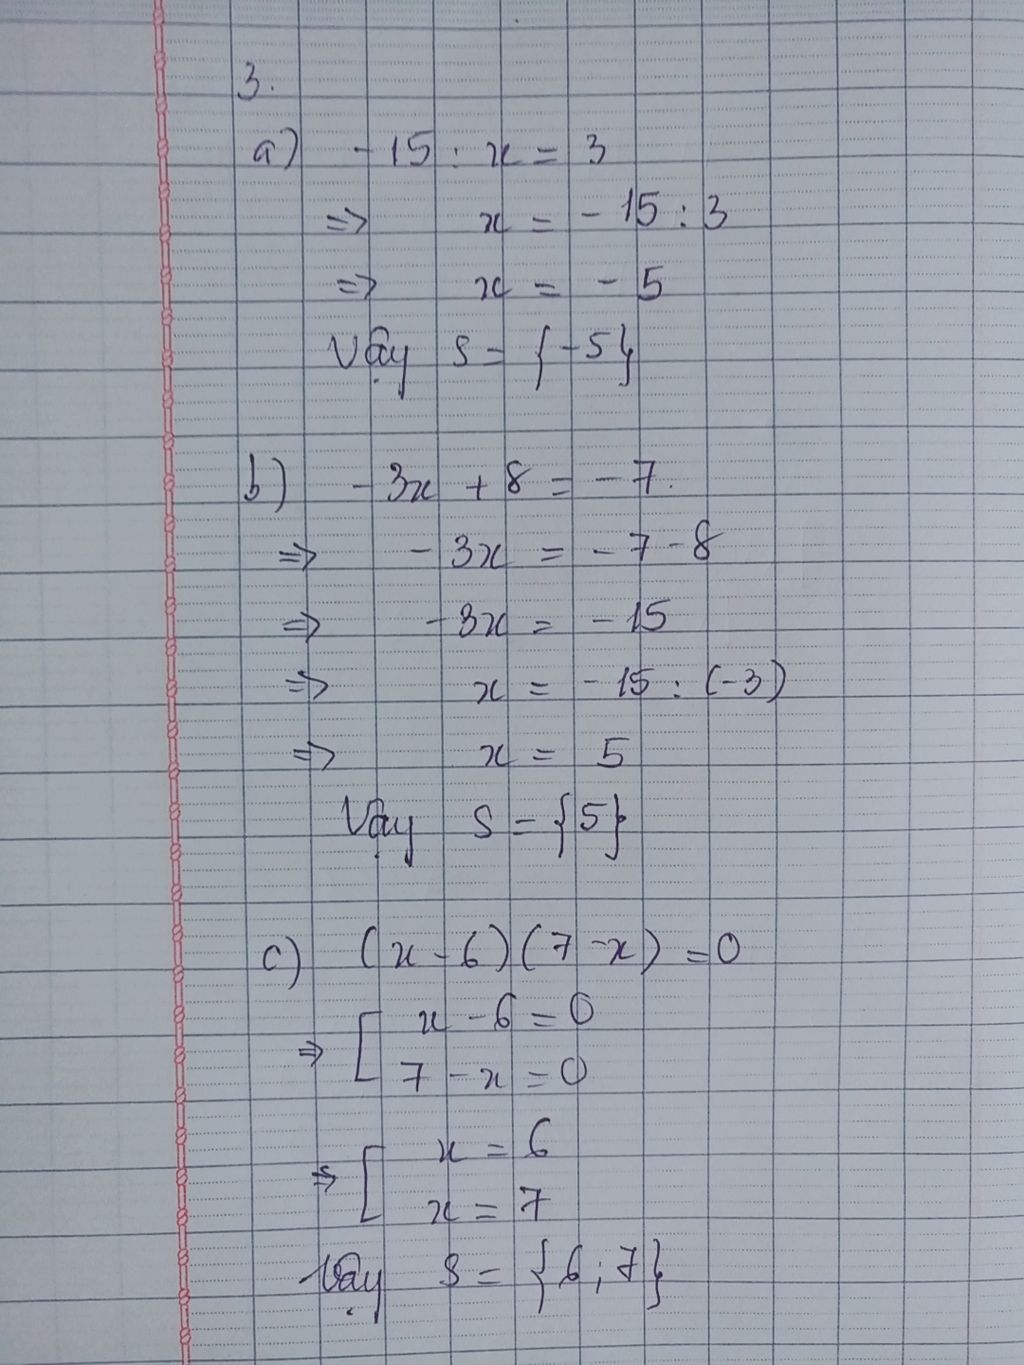 3.
a) -15 : x = 3
=> x = -15 : 3
=> x = -5
Vậy S = {-5}
b) -3x + 8 = -7.
=> -3x = -7 - 8
=> -3x = -15
=> x = -15 : (-3)
=> x = 5
Vậy S = {5}
c) (x - 6)(7 - x) = 0
=> [ x - 6 = 0
7 - x = 0
=> [ x = 6
x = 7
Vậy S = {6 ; 7}